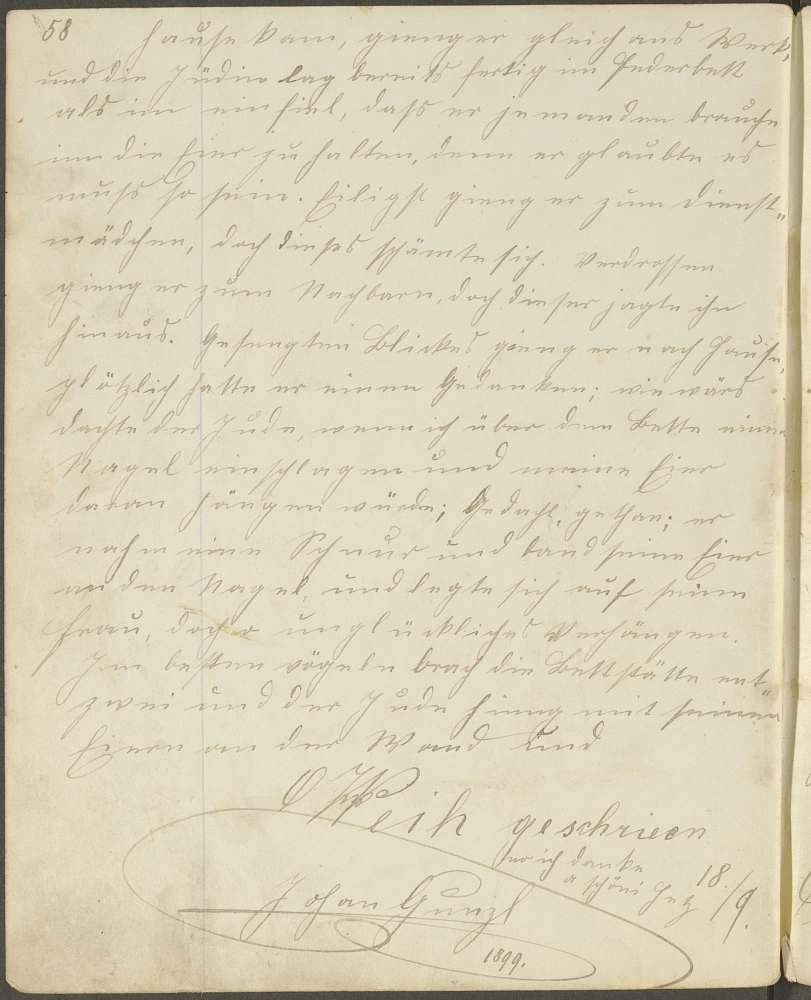 58
Hause kam, gieng er gleich ans Werk,
und die Jüdin lag bereits fertig im Federbett
als im einfiel, dass er jemanden brauche
um die Eier zu halten, denn er glaubte es
muss so sein. Eiligst gieng er zum Dienst„
mädchen, doch dieses schämte sich. Verdrossen
gieng er zum Nachbarn, doch dieser jagte ihn
hinaus. Gesengten Blickes gieng er nach Hause,
plötzlich hatte er einen Gedanken; wie wärs
dachte der Jude, wenn ich über dem Bette einen
Nagel einschlagen und meine Eier
daran hängen würde; Gedacht, gethan; er
nahm eine Schnur und band seine Eier
an den Nagel, und legte sich auf seine
Frau, doch o unglückliches Verhängen.
Im besten vögeln brach die Bettstätte ent„
zwei und der Jude hieng mit seinen
Eiern an der Wand und
O Weih geschrieen
no ich danke
a schöni Hez
18./9.
Johan Gunzl
1899.